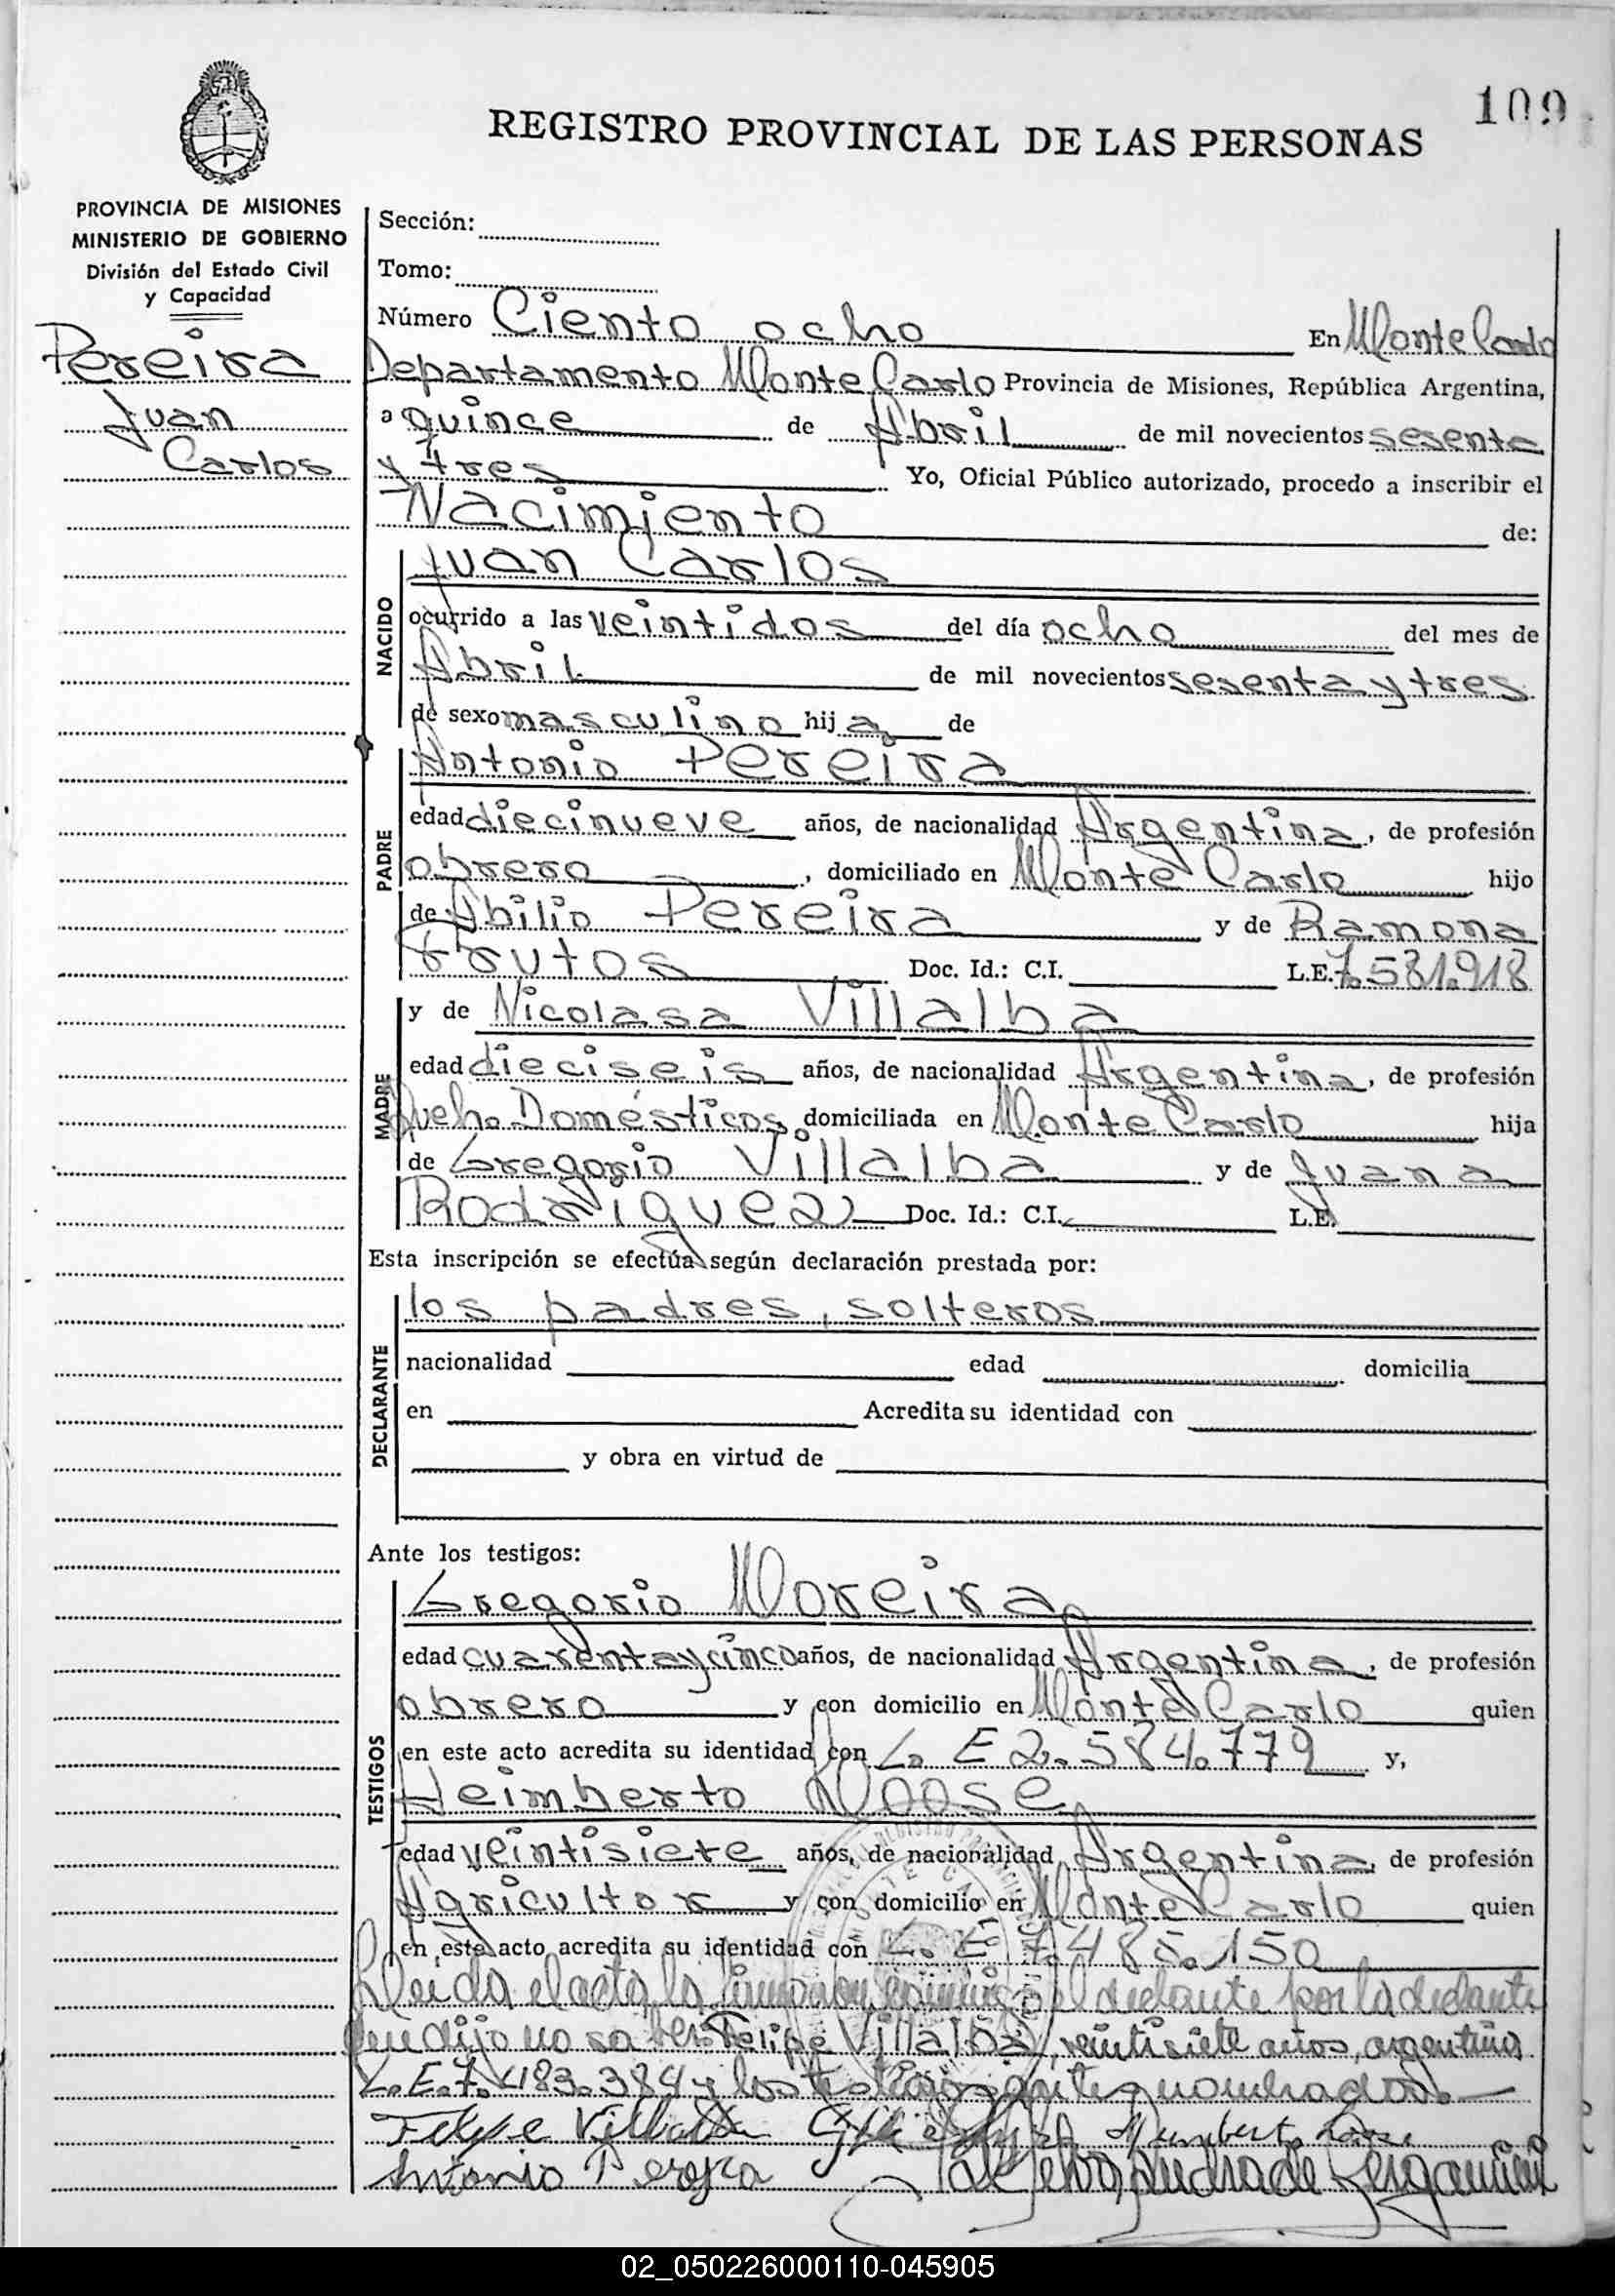 109
REGISTRO PROVINCIAL DE LAS PERSONAS
PROVINCIA DE MISIONES
MINISTERIO DE GOBIERNO
División del Estado Civil
y Capacidad
Pereira
Juan
Carlos
Sección:
Tomo:
Número Ciento ocho En Monte Carlo
Departamento Monte Carlo Provincia de Misiones, República Argentina,
a quince de Abril de mil novecientos sesenta
y tres Yo, Oficial Público autorizado, procedo a inscribir el
Nacimiento de:
NACIDO
Juan Carlos
ocurrido a las veintidos del día ocho del mes de
Abril de mil novecientos sesenta y tres
de sexo masculino hij de
PADRE
Antonio Pereira
edad diecinueve años, de nacionalidad Argentina, de profesión
obrero, domiciliado en Monte Carlo hijo
de Abilio Pereira y de Ramona
Frutos Doc. Id.: C.I. L.E. 7.581.918
MADRE
y de Nicolasa Villalba
edad dieciseis años, de nacionalidad Argentina, de profesión
Domésticos, domiciliada en Monte Carlo hija
de Gregorio Villalba y de Juana
Rodriguez Doc. Id.: C.I. L.E.
Esta inscripción se efectúa según declaración prestada por:
DECLARANTE
los padres, solteros
nacionalidad edad domicilia
en Acredita su identidad con
y obra en virtud de
Ante los testigos:
TESTIGOS
Gregorio Moreira
edad cuarenta y cinco años, de nacionalidad Argentina, de profesión
obrero y con domicilio en Monte Carlo quien
en este acto acredita su identidad con L. E 2.584.779 y,
Heimberto
edad veintisiete años, de nacionalidad Argentina, de profesión
Agricultor y con domicilio en Monte Carlo quien
en este acto acredita su identidad con L. E 7.485.150
Leida el acta, la por la declarante
dijo no saber Felipe Villalba, veintisiete años, argentino
L.E. 7.483.384 y los testigos antes nombrados.
Felipe Villalba
Antonio Pereira
02_050226000110-045905